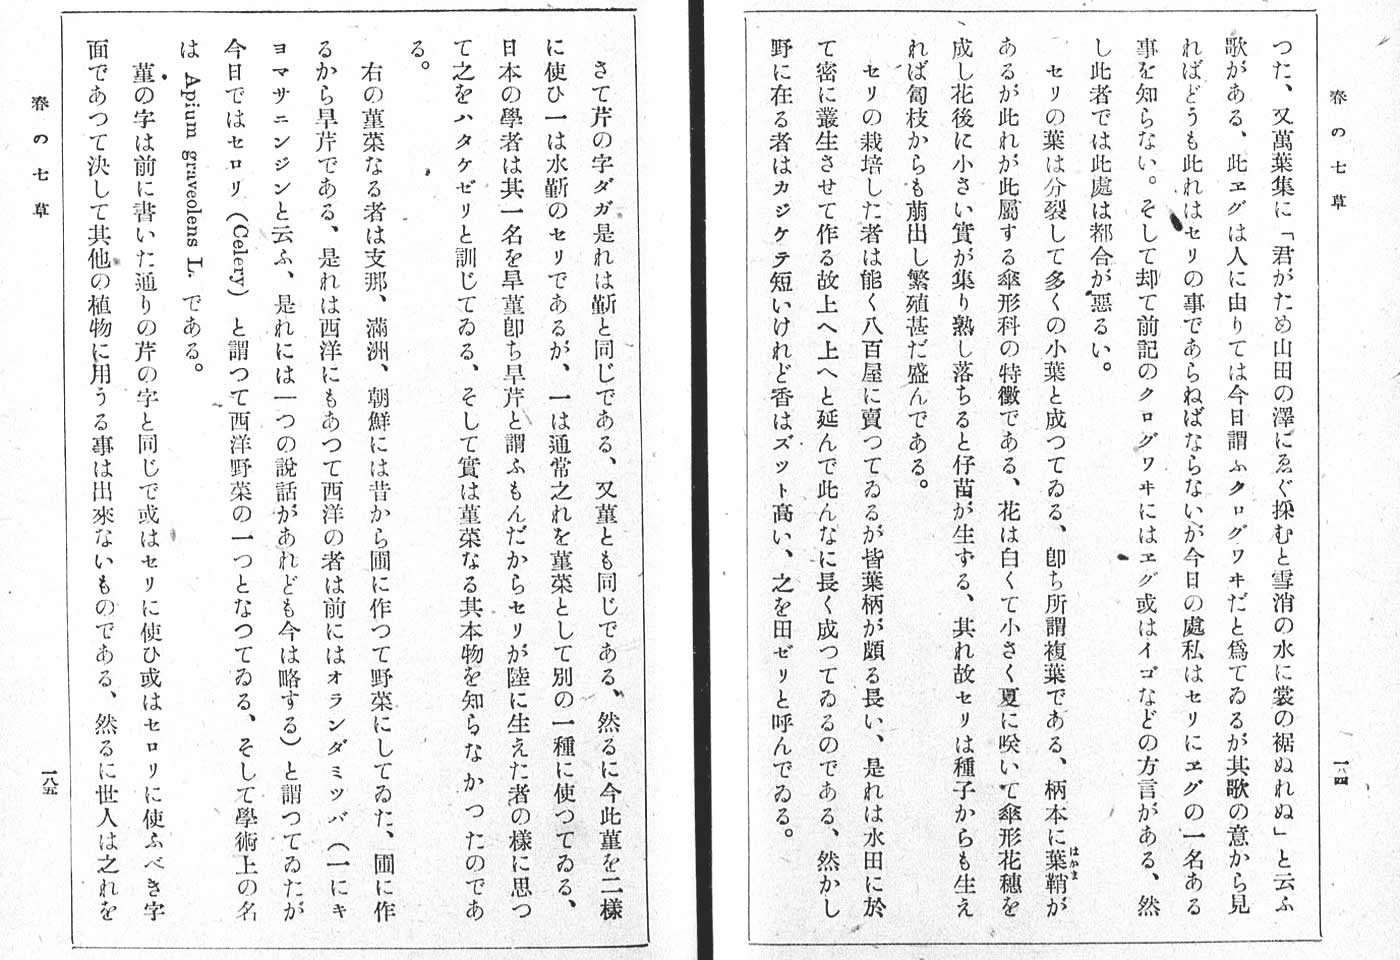 春の七草
一八四
つた、又萬葉集に「君がため山田の澤にゑぐ採むと雪消の水に裳の裾ぬれぬ」と云ふ
歌がある、此ヱグは人に由りては今日謂ふクログワヰだと爲てゐるが其歌の意から見
ればどうも此れはセリの事であらねばならないが今日の處私はセリにヱグの一名ある
事を知らない。そして却て前記のクログワヰにはヱグ或はイゴなどの方言がある、然
し此者では此處は都合が惡るい。
セリの葉は分裂して多くの小葉と成つてゐる、卽ち所謂複葉である、柄本に葉鞘はかまが
あるが此れが此屬する傘形科の特徵である、花は白くて小さく夏に咲いて傘形花穗を
成し花後に小さい實が集り熟し落ちると仔苗が生ずる、其れ故セリは種子からも生え
れば匐枝からも萠出し繁殖甚だ盛んである。
セリの栽培した者は能く八百屋に賣つてゐるが皆葉柄が頗る長い、是れは水田に於
て密に叢生させて作る故上へ上へと延んで此んなに長く成つてゐるのである、然かし
野に在る者はカジケテ短いけれど香はズット高い、之を田ゼリと呼んでゐる。
さて芹の字ダガ是れは靳と同じである、又菫とも同じである、然るに今此菫を二樣
に使ひ一は水靳のセリであるが、一は通常之れを菫菜として別の一種に使つてゐる、
日本の學者は其一名を旱菫卽ち旱芹と謂ふもんだからセリが陸に生えた者の樣に思つ
て之をハタケゼリと訓じてゐる、そして實は菫菜なる其本物を知らなかつたのであ
る。
右の菫菜なる者は支那、滿洲、朝鮮には昔から圃に作つて野菜にしてゐた、圃に作
るから旱芹である、是れは西洋にもあつて西洋の者は前にはオランダミツバ（一にキ
ヨマサニンジンと云ふ、是れには一つの說話があれども今は略する）と謂つてゐたが
今日ではセロリ（Celery）と謂つて西洋野菜の一つとなつてゐる、そして學術上の名
は Apium graveolens L. である。
菫の字は前に書いた通りの芹の字と同じで或はセリに使ひ或はセロリに使ふべき字
面であつて決して其他の植物に用うる事は出來ないものである、然るに世人は之れを
春の七草
一八五